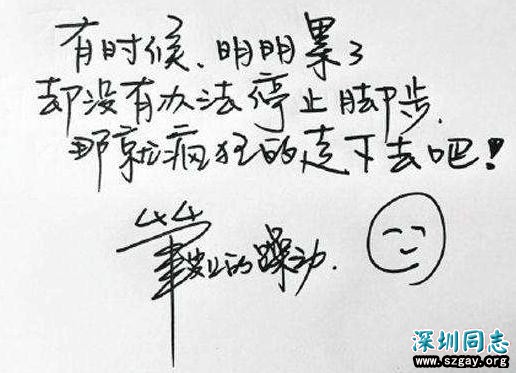 有时候、明明累了
却没有办法停止脚步.
那就疯狂的走下去吧!
的躁动.
深圳同志
www.szgay.org